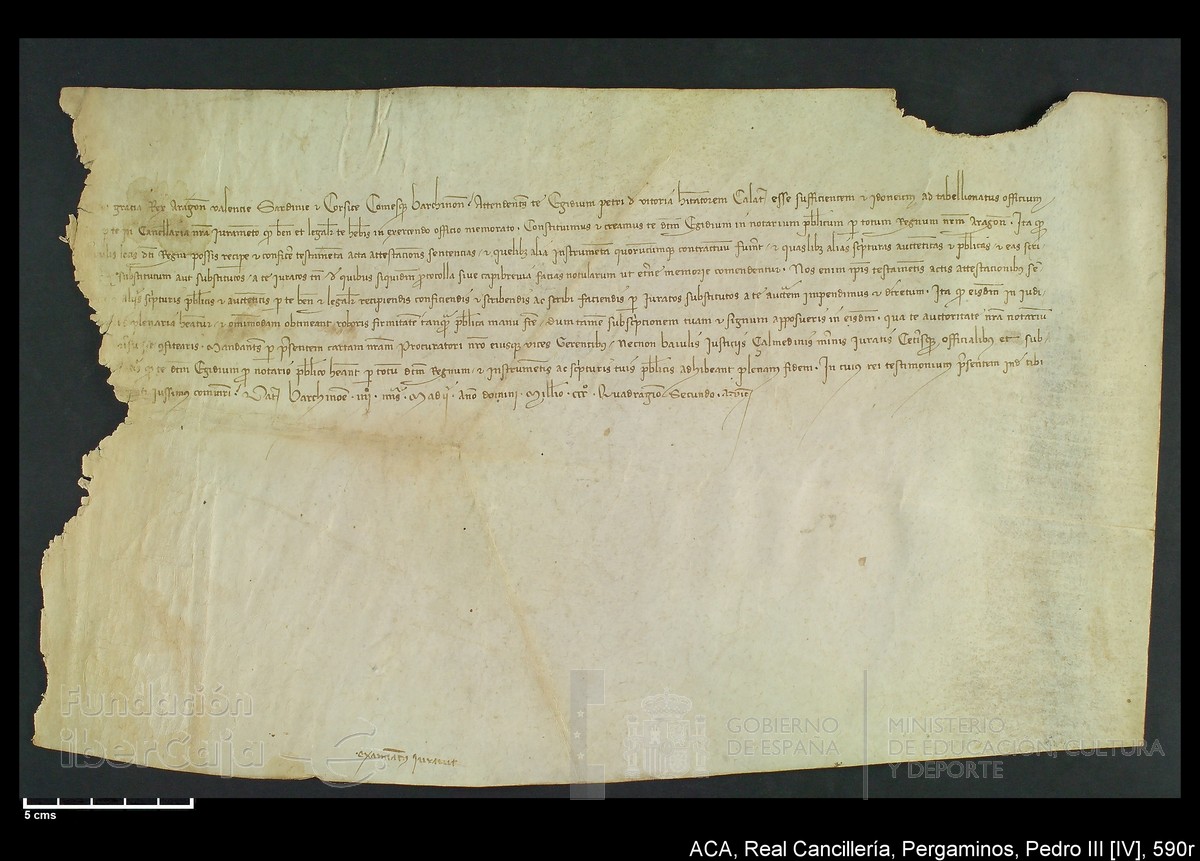 gracia Rex Aragon Valencie Sardinie et Corsice Comesq; Barchinon Attendentes te Egidium petri d vitoria hitatorem Calat esse sufficientem et idoneum ad tabellionatus officium
te in Cancillaria nra iurameto qp ben et legalr te hebis in exercendo officio memorato Constituimus et creamus te dcm Egidium in notarium pblicum p totum Regnum nrm Aragon Ita qp
dci Regni possis recipe et conficere testameta acta attestationes sentencias et quelibz alia instrumeta quorucumq; contractuu fuerit et quaslibz alias scripturas auctenticas et pblicas et eas scri
substitutum aut substitutos a te iuratos tn d quibus siquidem protocolla sive capibrevia facias notularum ut eterne memorie comendentur Nos enim ipis testametis actis attestationibus
scripturis pblicis et autenticis p te ben et legalr recipiendis conficiendis et scribendis ac scribi faciendis p iuratos substitutos a te auctem impendimus et decretum Ita qp eisdem in iudi
plenaria heatur et omnimodam obtineant roboris firmitate tanq pblica manu dum tamen subscripcionem tuam et signum apposueris in eisdem qua te auctoritate nra notariu
confitearis Mandantes p psentem cartam nram Procuratori nro eiusq; vices Gerentibus Necnon baiulis Iusticiis Çalmedinis iuratis Ceterisq; officialibus et sub
qp te dcm Egidium p notario pblico heant p totu dcm Regnum et instrumetis ac scripturis tuis pblicis adhibeant plenam fidem In cuius rei testimonium psentem inde tibi
iussimus comuniri Dat Barchinoe Madii Anno domini Millio ccc Quadragio Secundo
examiatus iuravit
Fundación
iberCaja
GOBIERNO
DE ESPAÑA
MINISTERIO
DE EDUCACIÓN, CULTURA
Y DEPORTE
5 cms
ACA, Real Cancillería, Pergaminos, Pedro III [IV], 590r